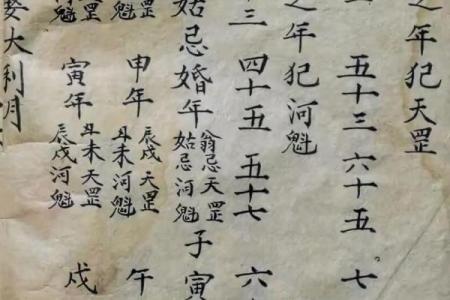 之年犯天罡
五十三 六十五 七
之年犯河魁
十三 四十五 五十七 六
姑忌婚年 翁忌天罡 姑忌河魁 子寅
罡 魁 申年 辰戌天罡 丑未河魁 午
罡 河魁 寅年 丑未天罡 辰戌河魁 戌
大利月